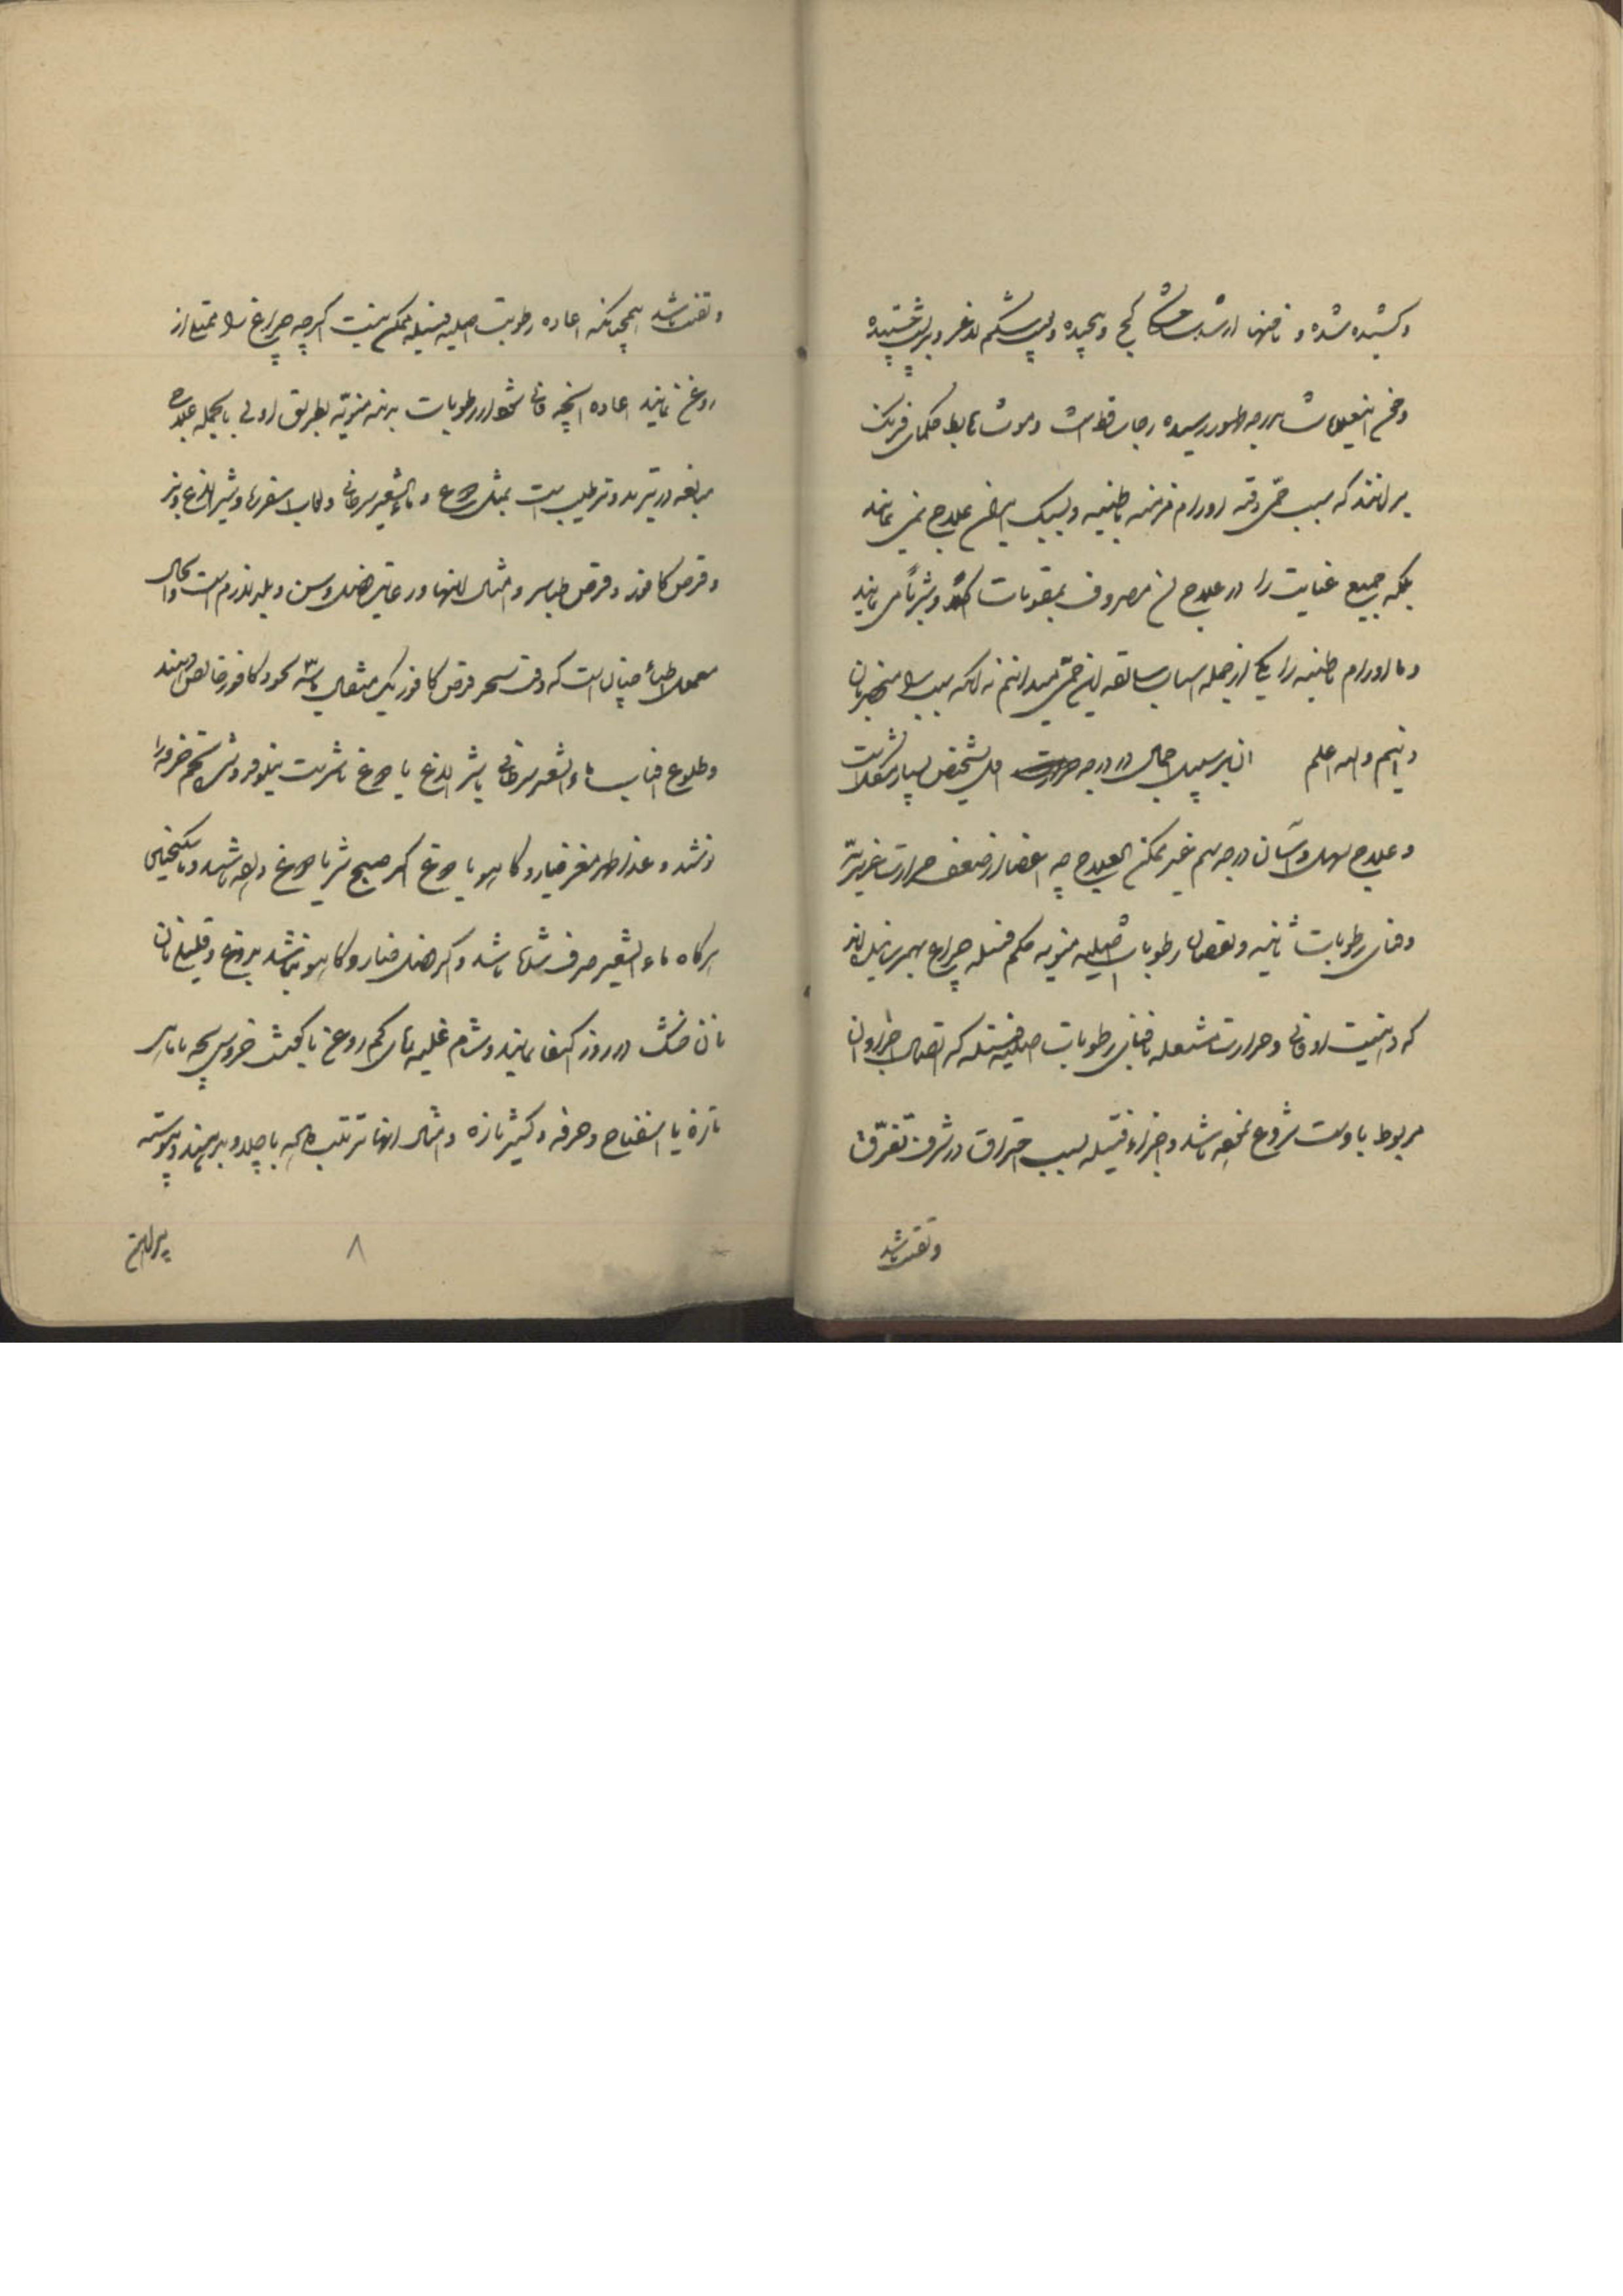 و کشیده شده و ناخنها از شدت کج و پیچیده و پوست شکم لاغر و بر پشت چسپیده
و چون این علامات بدرجه ظهور رسیده رجا ساقط است و حکمای فرنگ
بر آنند که سبب حمی دقیه اورام مزمنه باطنیه و لیکن علاج نمی نمایند
بلکه جمیع عنایت را در علاج آن مصروف بمقویات اکلاً و شرباً می نمایند
و ما اورام باطنیه را یکی از جمله اسباب سابقه این حمی میدانیم نه آنکه سبب را منحصر بآن
دانیم والله اعلم این بر سبیل اجمال در درجه اول تشخیص بسیار مشکل است
و علاج سهل و آسان درجه سیم غیر ممکن العلاج چه اعضا از ضعف حرارت غریزیّه
و فنای رطوبات ثانیه و نقصان رطوبات اصلیه منویه حکم فتیله چراغ بهم رسانیده اند
که دهنیت او فانی و حرارت مشتعله بافنای رطوبات اصلیه فتیله که اتصال اجزاء آن
مربوط باوست شروع نموده باشد و اجزاء فتیله بسبب احتراق در شرف تفرّق
و تفتت باشد
و تفتت باشد همچنانکه اعاده رطوبت اصلیه فتیله ممکن نیست اگرچه چراغ را ممتلی از
روغن نمایند اعاده آنچه فانی شده از رطوبات بدنیه منویّه بطریق اولی بالجمله علاج
مبالغه در تبرید و ترطیب است بمثل دوغ و ماءالشعیر سرطانی و لعاب اسفرزه و شیر الاغ و بز
و قرص کافور و قرص طباشیر و امثال اینها و رعایت فصل و سن و بلد لازم است و الحال
معمول اطباء چنان است که وقت سحر قرص کافور یک مثقال با سه نخود کافور خالص دهند
و طلوع آفتاب ماء الشعیر سرطانی یا شیر الاغ یا دوغ با شربت نیلوفر و شیره تخم خرفه را
نوشند و عند الظهر مغز خیار و کاهو با دوغ اگر صبح شیر یا دوغ داده باشند و با سکنجبین
هرگاه ماء الشعیر صرف شده باشد و اگر فصل خیار و کاهو نباشد بدوغ و قلیلی نان
نان خشک در روز اکتفا نمایند و شام غلیه های کم روغن با گوشت خروس بچه یا ماهی
تازه با اسفناج و خرفه و گشنیز تازه و امثال اینها ترتیب داده با چلاو بدهند و پیوسته
۸
پیراهن